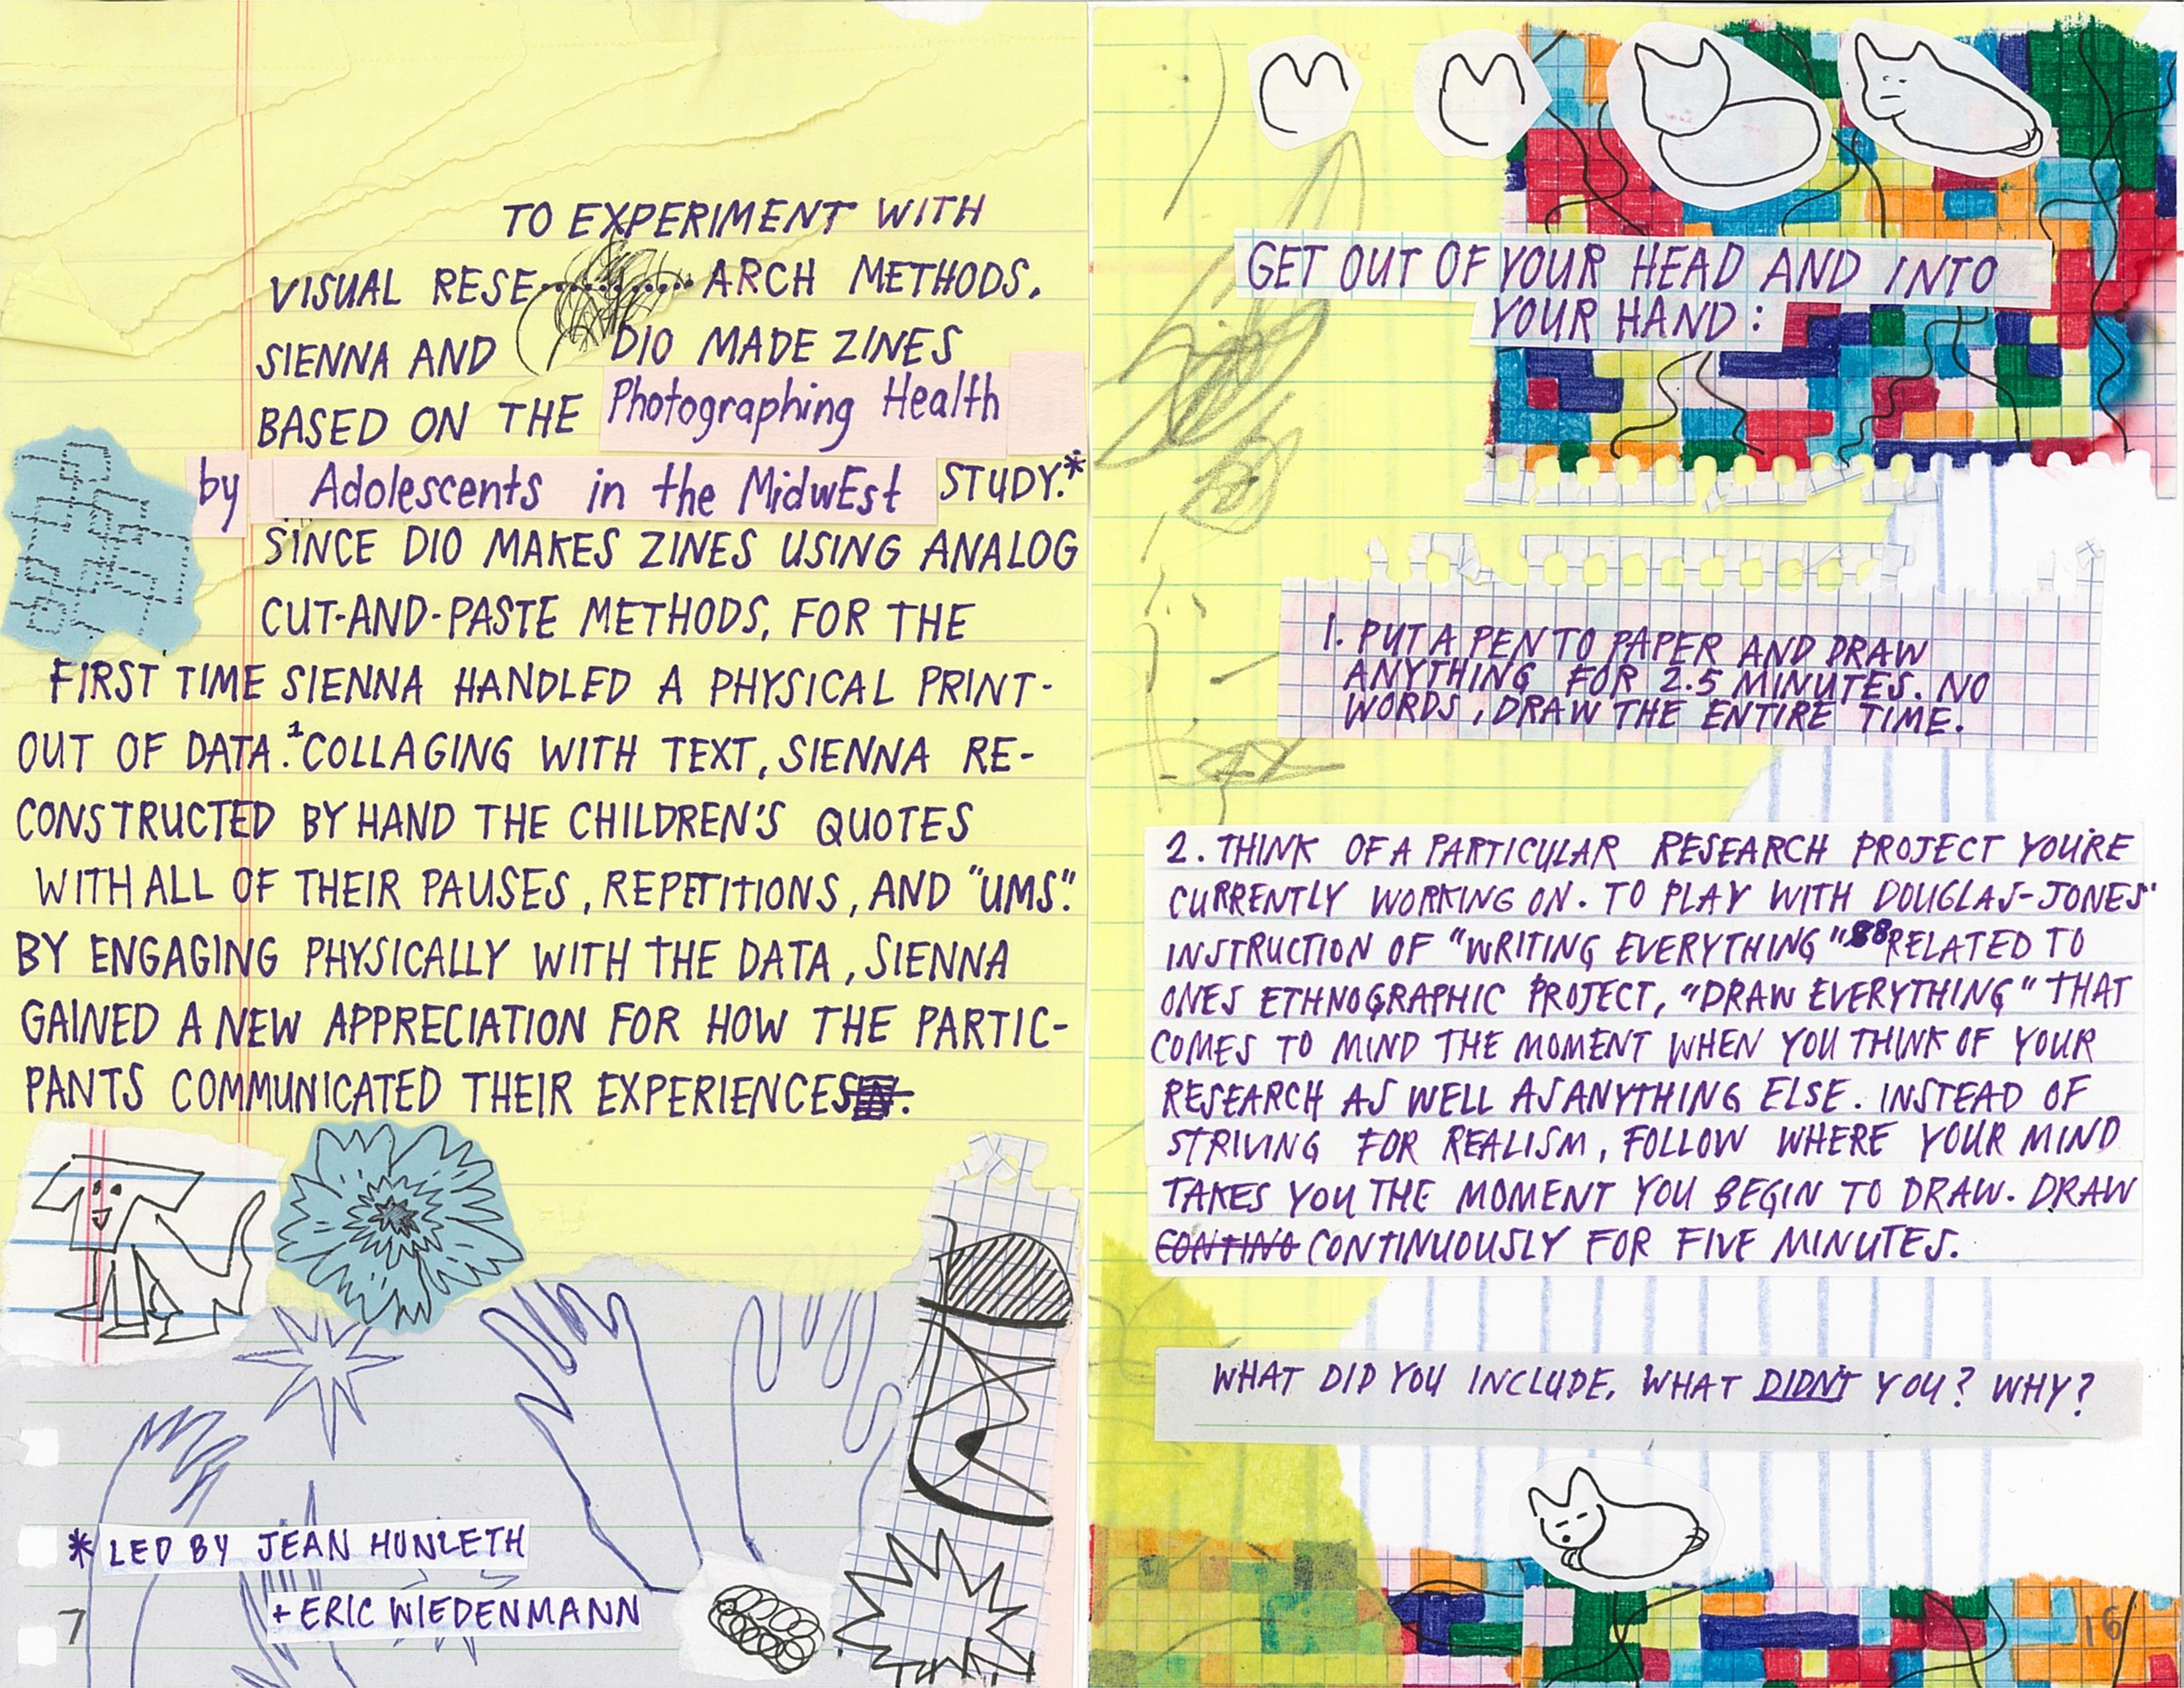 TO EXPERIMENT WITH
VISUAL RESE..........ARCH METHODS,
SIENNA AND DIO MADE ZINES
BASED ON THE Photographing Health
by Adolescents in the MidwEst STUDY.*
SINCE DIO MAKES ZINES USING ANALOG
CUT-AND-PASTE METHODS, FOR THE
FIRST TIME SIENNA HANDLED A PHYSICAL PRINT-
OUT OF DATA.¹ COLLAGING WITH TEXT, SIENNA RE-
CONSTRUCTED BY HAND THE CHILDREN'S QUOTES
WITH ALL OF THEIR PAUSES, REPETITIONS, AND "UMS".
BY ENGAGING PHYSICALLY WITH THE DATA, SIENNA
GAINED A NEW APPRECIATION FOR HOW THE PARTIC-
PANTS COMMUNICATED THEIR EXPERIENCES.
* LED BY JEAN HUNLETH
+ ERIC WIEDENMANN
7
GET OUT OF YOUR HEAD AND INTO
YOUR HAND:
1. PUT A PEN TO PAPER AND DRAW
ANYTHING FOR 2.5 MINUTES. NO
WORDS, DRAW THE ENTIRE TIME.
2. THINK OF A PARTICULAR RESEARCH PROJECT YOU'RE
CURRENTLY WORKING ON. TO PLAY WITH DOUGLAS-JONES'
INSTRUCTION OF "WRITING EVERYTHING" 88 RELATED TO
ONES ETHNOGRAPHIC PROJECT, "DRAW EVERYTHING" THAT
COMES TO MIND THE MOMENT WHEN YOU THINK OF YOUR
RESEARCH AS WELL AS ANYTHING ELSE. INSTEAD OF
STRIVING FOR REALISM, FOLLOW WHERE YOUR MIND
TAKES YOU THE MOMENT YOU BEGIN TO DRAW. DRAW
CONTINO CONTINUOUSLY FOR FIVE MINUTES.
WHAT DID YOU INCLUDE, WHAT DIDN'T YOU? WHY?
16